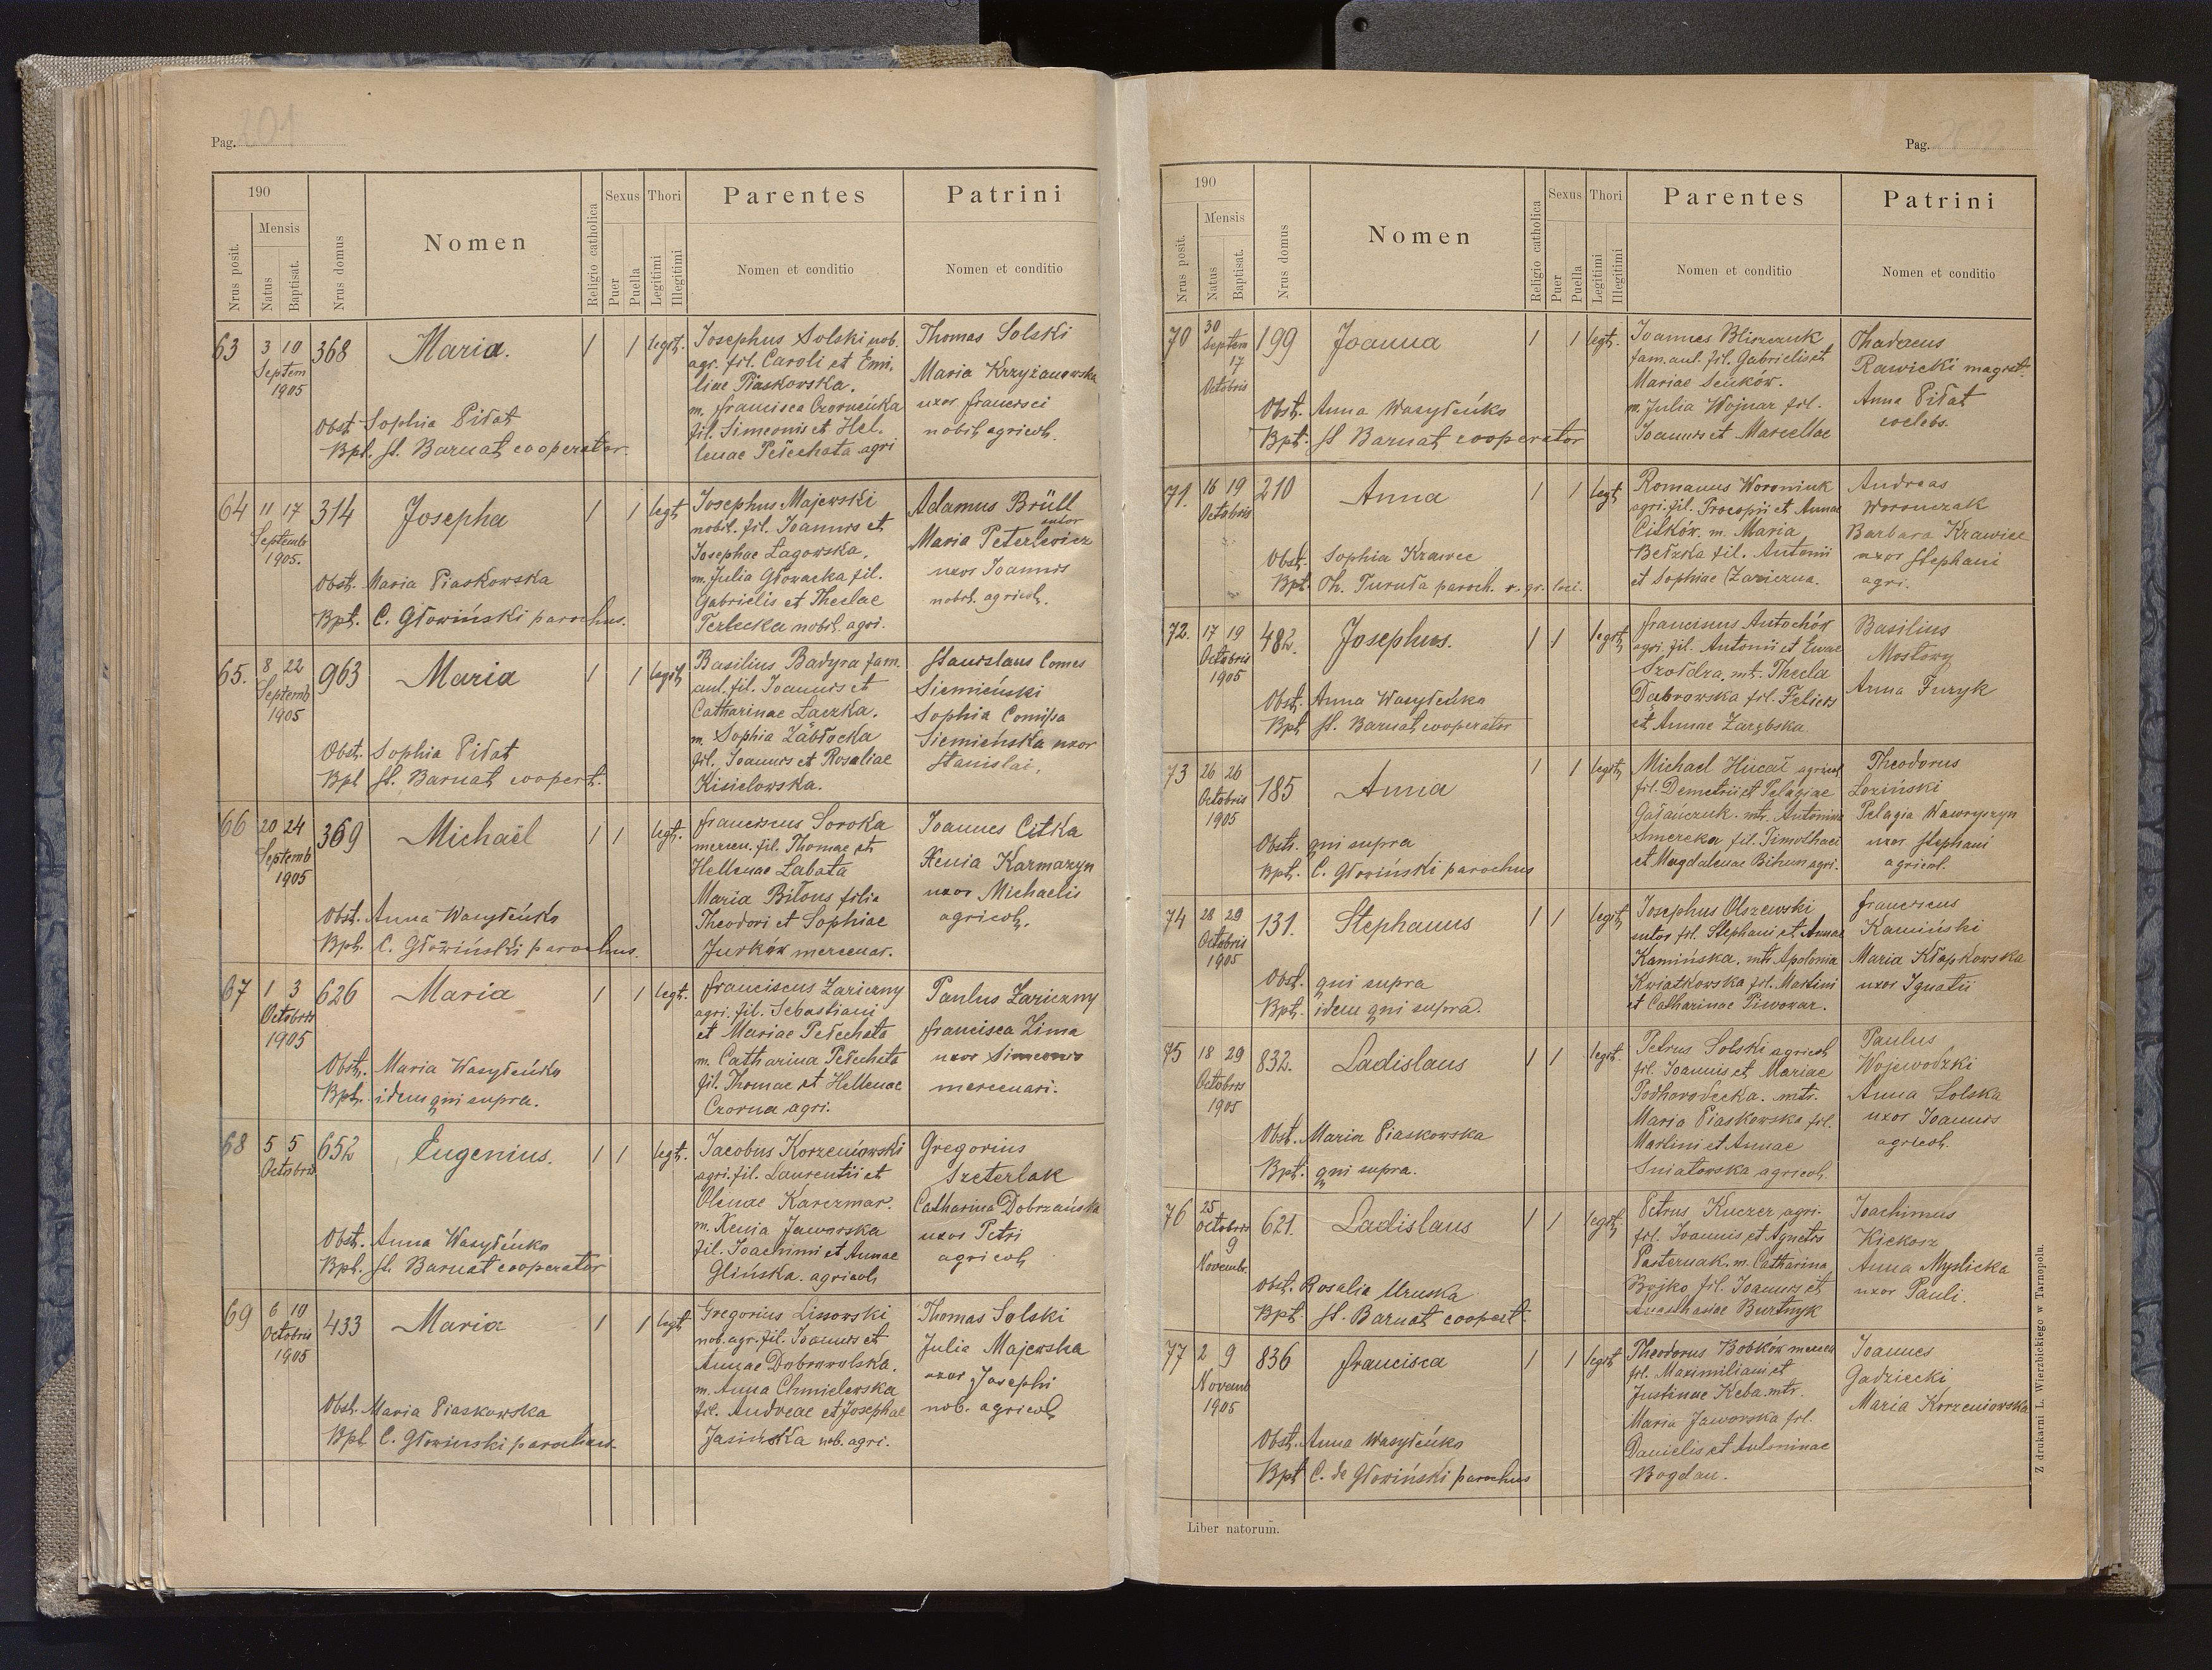 Pag. 201
190
Nrus posit.
Mensis
Natus
Baptisat.
Nrus domus
Nomen
Religio catholica
Sexus
Puer
Puella
Thori
Legitimi
Illegitimi
Parentes
Nomen et conditio
Patrini
Nomen et conditio
63 3 10 Septem 1905 368 Maria. 1 1 legit.
Josephus Solski nob.
agr. fil. Caroli et Emi-
liae Piaskowska.
m. Francisca Czorneńka
fil. Simeonis et Hel-
lenae Pełechata agri
Thomas Solski
Maria Krzyżanowska
uxor Francisci
nobil. agricol.
Obst. Sophia Piłat
Bpt. St. Barnat cooperator
64 11 17 Septemb 1905. 314 Josepha 1 1 legt
Josephus Majewski
nobil. fil. Joannis et
Josephae Łagowska.
m. Julia Głowacka fil.
Gabrielis et Theclae
Terlecka nobil. agri.
Adamus Brüll
sutor
Maria Peterlewicz
uxor Joannis
nobil. agricol.
Obst. Maria Piaskowska
Bpt. C. Głowiński parochus.
65. 8 22 Septemb 1905 963 Maria 1 1 legit
Basilius Badyra fam.
aul. fil. Joannis et
Catharinae Łaczka.
m. Sophia Zabłocka
fil. Joannis et Rosaliae
Kisielowska.
Stanislaus Comes
Siemieński
Sophia Comissa
Siemieńska uxor
Stanislai.
Obst. Sophia Piłat
Bpt St. Barnat coopert.
66 20 24 Septemb 1905 369 Michaël 1 1 legt.
Franciscus Soroka
mercen. fil. Thomae et
Hellenae Labata
Maria Biłous filia
Theodori et Sophiae
Jurków mercenar.
Joannes Citka
Xenia Karmazyn
uxor Michaelis
agricol.
Obst. Anna Wasyłeńko
Bpt. C. Głowiński parochus.
67 1 3 Octobris 1905 626 Maria 1 1 legt.
Franciscus Zariczny
agri. fil. Sebastiani
et Mariae Pełechata
m. Catharina Pełechata
fil. Thomae et Hellenae
Czorna agri.
Paulus Zariczny
Francisca Zima
uxor Simeonis
mercenari.
Obst. Maria Wasyłeńko
Bpt. idem qui supra.
68 5 5 Octobris 652 Eugenius. 1 1 legt.
Jacobus Korzeniowski
agri. fil. Laurentii et
Olenae Karczmar.
m. Xenia Jaworska
fil. Joachimi et Annae
Glińska. agricol.
Gregorius
Szeterlak
Catharina Dobrzańska
uxor Petri
agricol.
Obst. Anna Wasyłeńko
Bpt. St. Barnat cooperator
69 6 10 Octobris 1905 433 Maria 1 1 legt
Gregorius Lissowski
nob. agr. fil. Joannis et
Annae Dobrowolska.
m. Anna Chmielewska
fil. Andreae et Josephae
Jasińska nob. agri.
Thomas Solski
Julia Majewska
uxor Josephi
nob. agricol.
Obst. Maria Piaskowska
Bpt C. Głowinski parochus.
Pag. 202
190
Nrus posit.
Mensis
Natus
Baptisat.
Nrus domus
Nomen
Religio catholica
Sexus
Puer
Puella
Thori
Legitimi
Illegitimi
Parentes
Nomen et conditio
Patrini
Nomen et conditio
70 30 Septem 17 Octobris 199 Joanna 1 1 legt.
Joannes Bliszczuk
fam. aul. fil. Gabrielis et
Mariae Senków.
m. Julia Wojnar fil.
Joannis et Marcellae
Thadaeus
Rawicki magist.
Anna Piłat
coelebs.
Obst. Anna Wasyłeńko
Bpt. St Barnat cooperator
71. 16 19 Octobris 210 Anna 1 1 legt
Romanus Woroniuk
agri. fil. Procopii et Annae
Citków. m. Maria
Bełzka fil. Antonii
et Sophiae Zariczna.
Andreas
Woronczak
Barbara Krawiec
uxor Stephani
agri.
Obst. Sophia Krawec
Bpt. Th. Turuła paroch. r. gr. loci.
72. 17 19 Octobris 1905 482. Josephus. 1 1 legit
Franciscus Antochów
agri. fil. Antonii et Ewae
Szołdra. mt. Thecla
Dąbrowska fil. Felicis
et Annae Zarębska
Basilius
Mostowy
Anna Furyk
Obst. Anna Wasyłeńko
Bpt St. Barnat cooperator
73 26 26 Octobris 1905 185 Anna 1 1 legit
Michael Hucał agricol
fil. Demetrii et Pelagiae
Gałańczuk. mt. Antonina
Smereka fil. Timothaei
et Magdalenae Bihun agri.
Theodorus
Loziński
Pelagia Wawryszyn
uxor Stephani
agricol.
Obst. qui supra
Bpt. C. Głowiński parochus
74 28 29 Octobris 1905 131. Stephanus 1 1 legit
Josephus Olszewski
sutor fil. Stephani et Annae
Kamińska. mt. Apolonia
Kwiatkowska fil. Martini
et Catharinae Piwowar.
Franciscus
Kamiński
Maria Kłapkowska
uxor Ignatii
Obst. qui supra
Bpt. idem qui supra.
75 18 29 Octobris 1905 832. Ladislaus 1 1 legit.
Petrus Solski agricol
fil. Joannis et Mariae
Podhorodecka. mtr.
Maria Piaskowska fil.
Martini et Annae
Sniatowska agricol.
Paulus
Wojewodzki
Anna Solska
uxor Joannis
agricol.
Obst. Maria Piaskowska
Bpt. qui supra.
76 25 Octobris 9 Novemb. 621. Ladislaus 1 1 legit.
Petrus Kuczer agri.
fil. Joannis et Agnetis
Pasternak. m. Catharina
Bojko fil. Joannis et
Anasthasiae Burtnyk
Joachimus
Kickosz
Anna Myslicka
uxor Pauli
Obst. Rosalia Uruska
Bpt. St. Barnat coopert.
77 2 9 Novemb 1905 836 Francisca 1 1 legit
Theodorus Bobków mercen
fil. Maximiliani et
Justinae Keba. mtr.
Maria Jaworska fil.
Danielis et Antoninae
Bogdan.
Joannes
Gadziecki
Maria Korzeniowska
Obst. Anna Wasyłeńko
Bpt C. de Głowiński parochus
Liber natorum.
Z drukarni L. Wierzbickiego w Tarnopolu.